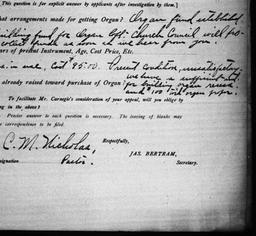 [This question is for explicit answer by applicants after investigation by them.]
hat arrangements made for getting Organ? Organ fund established.
uilding fund for Organ Gift. Church Council will pro-
vide funds as soon as we hear from you.
ars of present Instrument, Age, Cost Price, Etc.
in use, cost 95.00. Present condition, unsatisfactory
we have a sufficient
already raised toward purchase of Organ? for building organ recess
and $100 organ
To facilitate Mr. Carnegie's consideration of your appeal, will you oblige by
ng in the above?
Precise answer to each question is necessary. The leaving of blanks may
e correspondence to be filed.
Respectfully,
C. M. Nicholas,
JAS. BERTRAM,
signation Pastor.
Secretary.